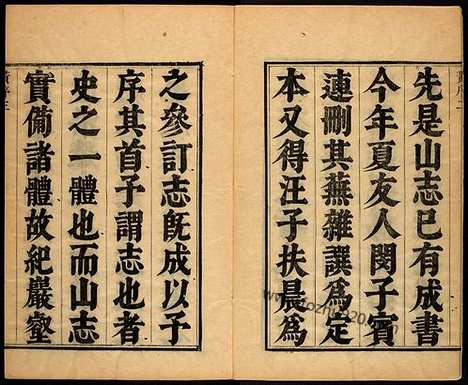 先是山志已有成書
今年夏友人閔子賓
連刪其蕪雜譔為定
本又得汪子扶晨為
之參訂志既成以予
序其首予謂志也者
史之一體也而山志
實備諸體故紀巖壑